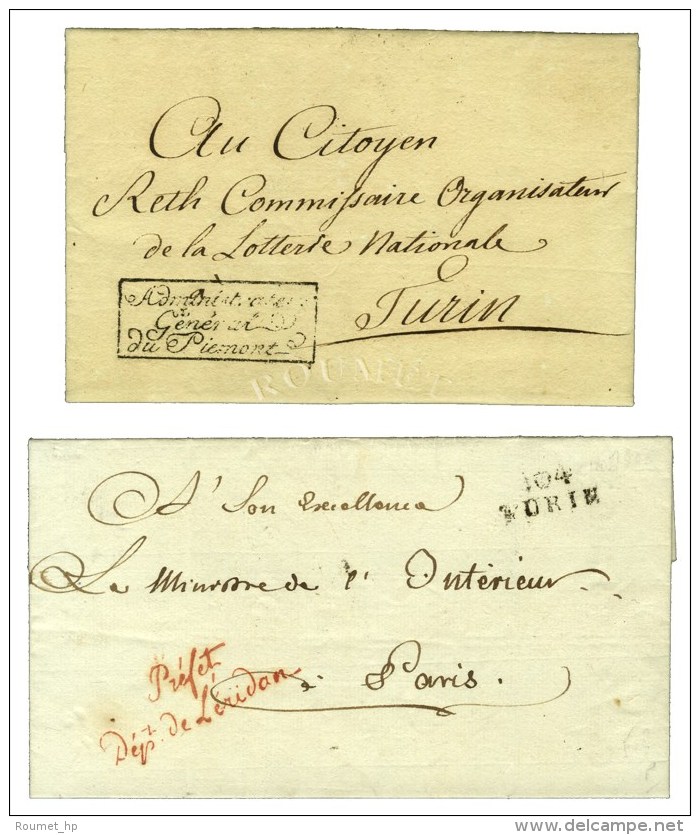 Au Citoyen
Reth Commissaire Organisateur
de la Lotterie Nationale
Turin
Administrateur
Général
du Piémont
ROUMET
104
TURIN
A' Son Excellence
Le Ministre de l' Intérieur
à Paris.
Préfet
Dépt. de L'éridan
Roumet_hp
delcampe.net